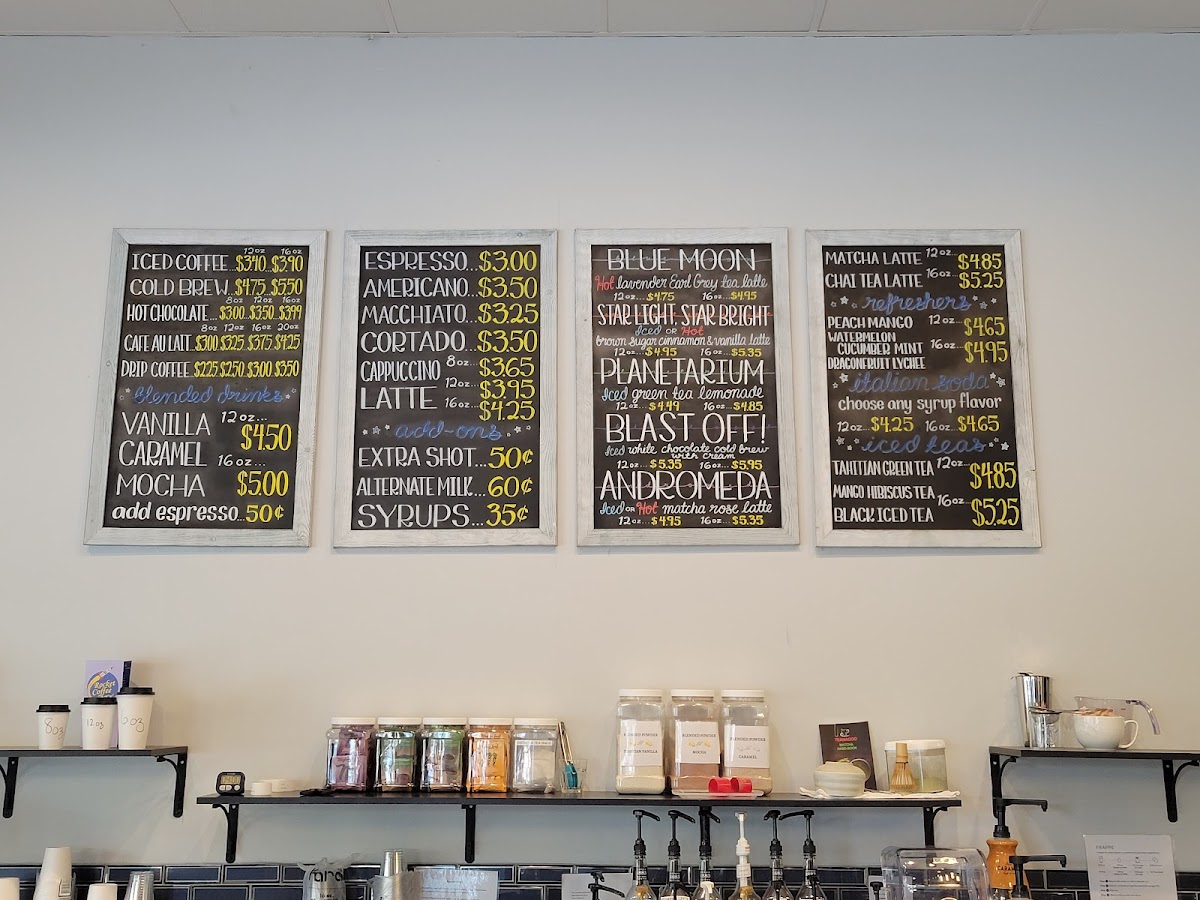 12oz 16oz
ICED COFFEE...$3.40...$3.90
COLD BREW...$4.75...$5.50
8oz 12oz 16oz
HOT CHOCOLATE...$3.00...$3.50...$3.99
8oz 12oz 16oz 20oz
CAFE AU LAIT...$3.00 $3.25...$3.75 $4.25
DRIP COFFEE...$2.25 $2.50...$3.00 $3.50
blended drinks
VANILLA 12oz...
$4.50
CARAMEL 16oz...
MOCHA $5.00
add espresso...50¢
ESPRESSO...$3.00
AMERICANO...$3.50
MACCHIATO...$3.25
CORTADO...$3.50
CAPPUCCINO 8oz...$3.65
LATTE 12oz...$3.95
16oz...$4.25
add-ons
EXTRA SHOT...50¢
ALTERNATE MILK...60¢
SYRUPS...35¢
BLUE MOON
Hot lavender Earl Grey tea latte
12oz...$4.75 16oz...$4.95
STAR LIGHT, STAR BRIGHT
Iced OR Hot
brown sugar cinnamon & vanilla latte
12oz...$4.95 16oz...$5.35
PLANETARIUM
Iced green tea lemonade
12oz...$4.49 16oz...$4.85
BLAST OFF!
Iced white chocolate cold brew
with cream
12oz...$5.35 16oz...$5.95
ANDROMEDA
Iced OR Hot matcha rose latte
12oz...$4.95 16oz...$5.35
MATCHA LATTE 12oz...$4.85
CHAI TEA LATTE 16oz...$5.25
refreshers
PEACH MANGO 12oz...$4.65
WATERMELON
CUCUMBER MINT 16oz...$4.95
DRAGONFRUIT LYCHEE
italian soda
choose any syrup flavor
12oz...$4.25 16oz...$4.65
iced teas
TAHITIAN GREEN TEA 12oz...$4.85
MANGO HIBISCUS TEA
16oz...$5.25
BLACK ICED TEA
Rocket
Coffee
8oz
12oz
BLENDED POWDER
BLENDED POWDER
MOCHA
BLENDED POWDER
CARAMEL
FRAPPE